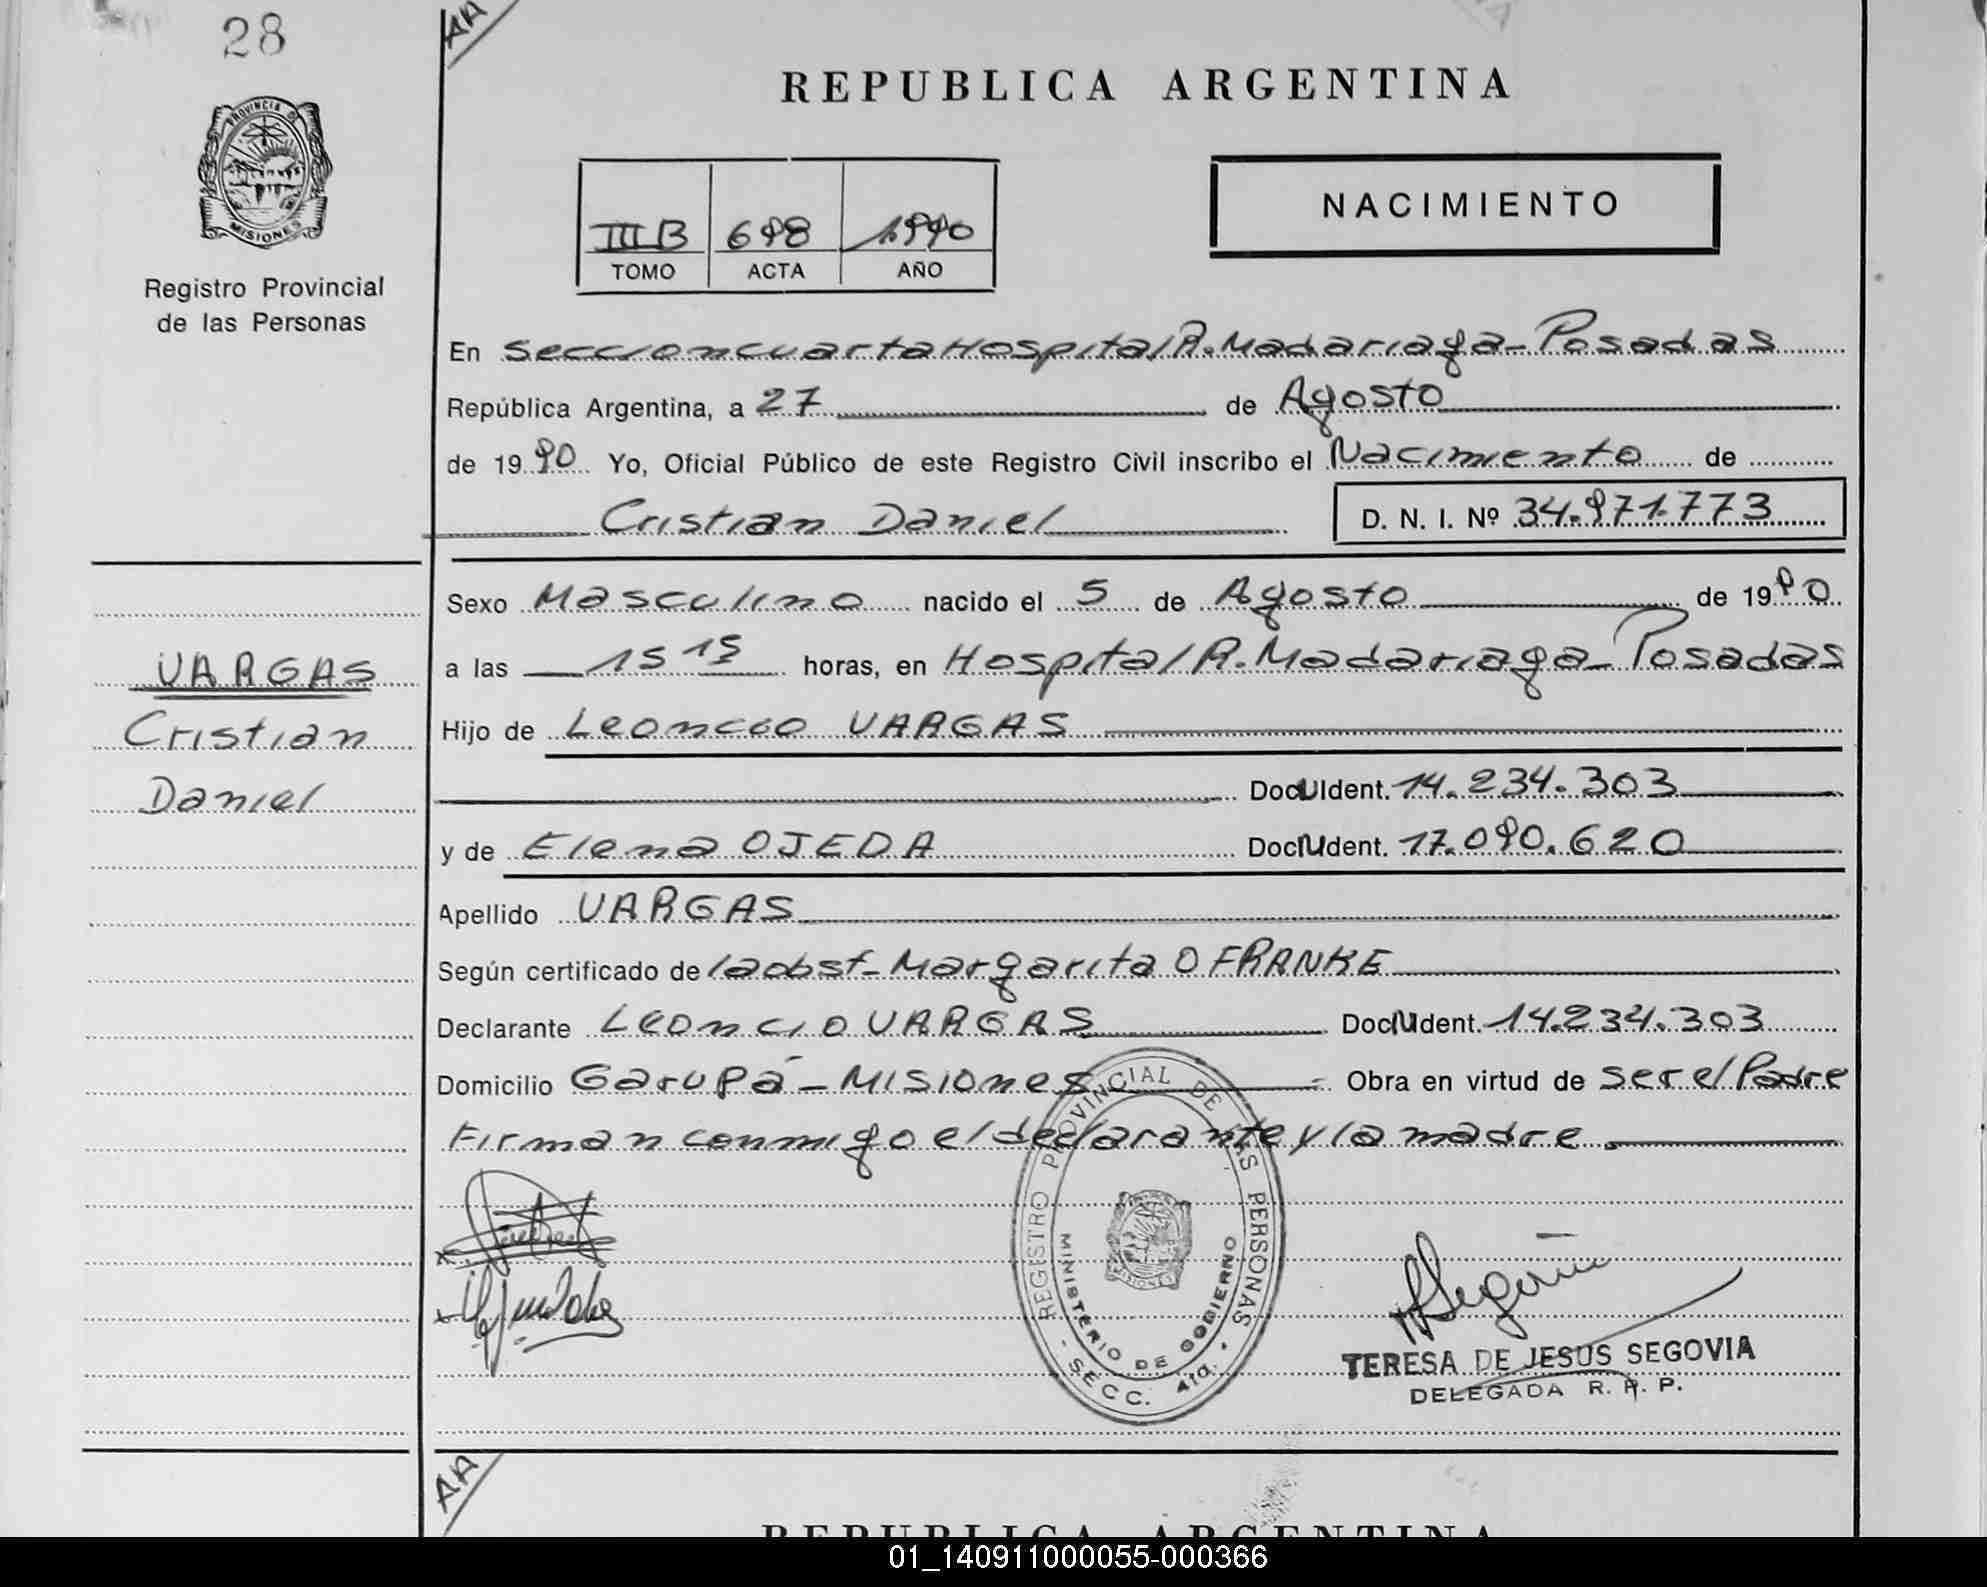 28
AA
REPUBLICA ARGENTINA
PROVINCIA D
MISIONES
Registro Provincial
de las Personas
III B 698 1990
TOMO ACTA AÑO
NACIMIENTO
En Seccion cuarta Hospital R. Madariaga - Posadas
República Argentina, a 27 de Agosto
de 1990 Yo, Oficial Público de este Registro Civil inscribo el Nacimiento de
Cristian Daniel D. N. I. Nº 34.971.773
Sexo Masculino nacido el 5 de Agosto de 1990
a las 15 15 horas, en Hospital R. Madariaga - Posadas
Hijo de Leoncio VARGAS
Doc. Ident. 14.234.303
y de Elena OJEDA Doc. Ident. 17.090.620
Apellido VARGAS
Según certificado de la obst - Margarita O FRANKE
Declarante Leoncio VARGAS Doc. Ident. 14.234.303
Domicilio Garupá - Misiones Obra en virtud de ser el Padre
Firman conmigo el declarante y la madre.
VARGAS
Cristian
Daniel
REGISTRO PROVINCIAL DE LAS PERSONAS
MINISTERIO DE GOBIERNO
MISIONES
- SECC. 4ta. -
Segovia
TERESA DE JESUS SEGOVIA
DELEGADA R. P. P.
AA
REPUBLICA ARGENTINA
01_140911000055-000366